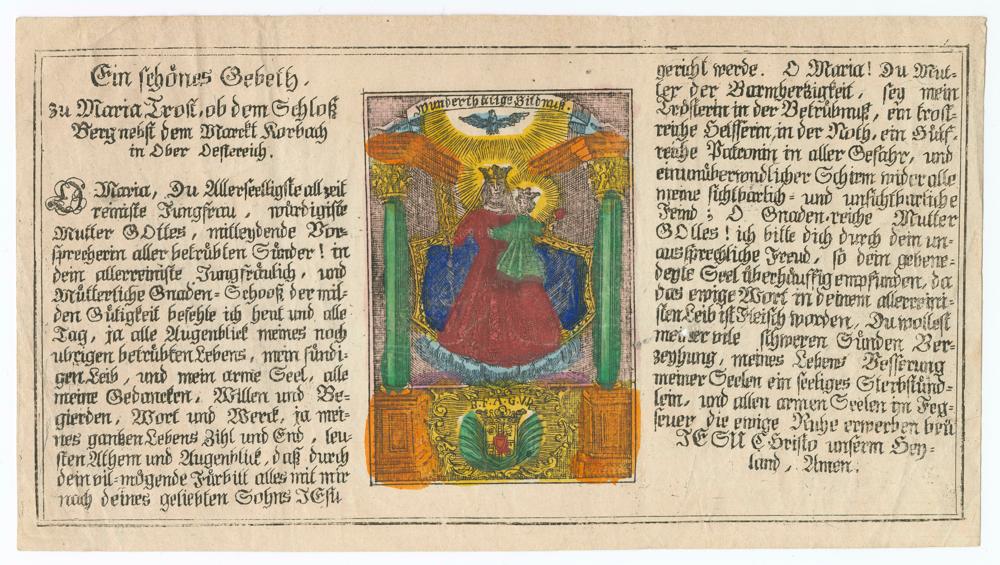 Ein schönes Gebeth,
zu Maria Trost, ob dem Schloß
Berg nebst dem Marckt Korbach
in Ober Oestereich.
O Maria, Du Allerseeligste all zeit
reiniste Jungfrau, würdigiste
Mutter GOttes, mitleydende Vor-
sprecherin aller betrübten Sünder! in
dein allerreiniste Jungfräulich, und
Mütterliche Gnaden-Schooß der mil-
den Gütigkeit befehle ich heut und alle
Tag, ja alle Augenblick meines noch
übrigen betrübten Lebens, mein sündi-
gen Leib, und mein arme Seel, alle
meine Gedancken, Willen und Be-
gierden, Wort und Werck, ja mei-
nes gantzen Lebens Zihl und End, leu-
sten Athem und Augenblick, daß durch
dein vil-mögende Fürbitt alles mit mir
nach deines geliebten Sohns JEsu
Wunderthätige Bildnuß.
gericht werde. O Maria! Du Mut-
ter der Barmhertzigkeit, sey mein
Trösterin in der Betrübnuß, ein trost-
reiche Helfferin in der Noth, ein Hülf-
reiche Patronin in aller Gefahr, und
ein unüberwondlicher Schirm wider alle
meine sichtbarlich- und unsichtbarliche
Feind; O Gnaden-reiche Mutter
GOttes! ich bitte dich durch dein un-
aussprechliche Freud, so dein gebene-
deyte Seel überhäuffig empfunden, da
das ewige Wort in deinem allerreini-
sten Leib ist Fleisch worden, Du wollest
meiner vile schweren Sünden Ver-
zeyhung, meines Lebens Besserung
meiner Seelen ein seeliges Sterbstünd-
lein, und allen armen Seelen im Feg-
feuer die ewige Ruhe erwerben bey
JESU CHristo unserm Hey-
land, Amen.